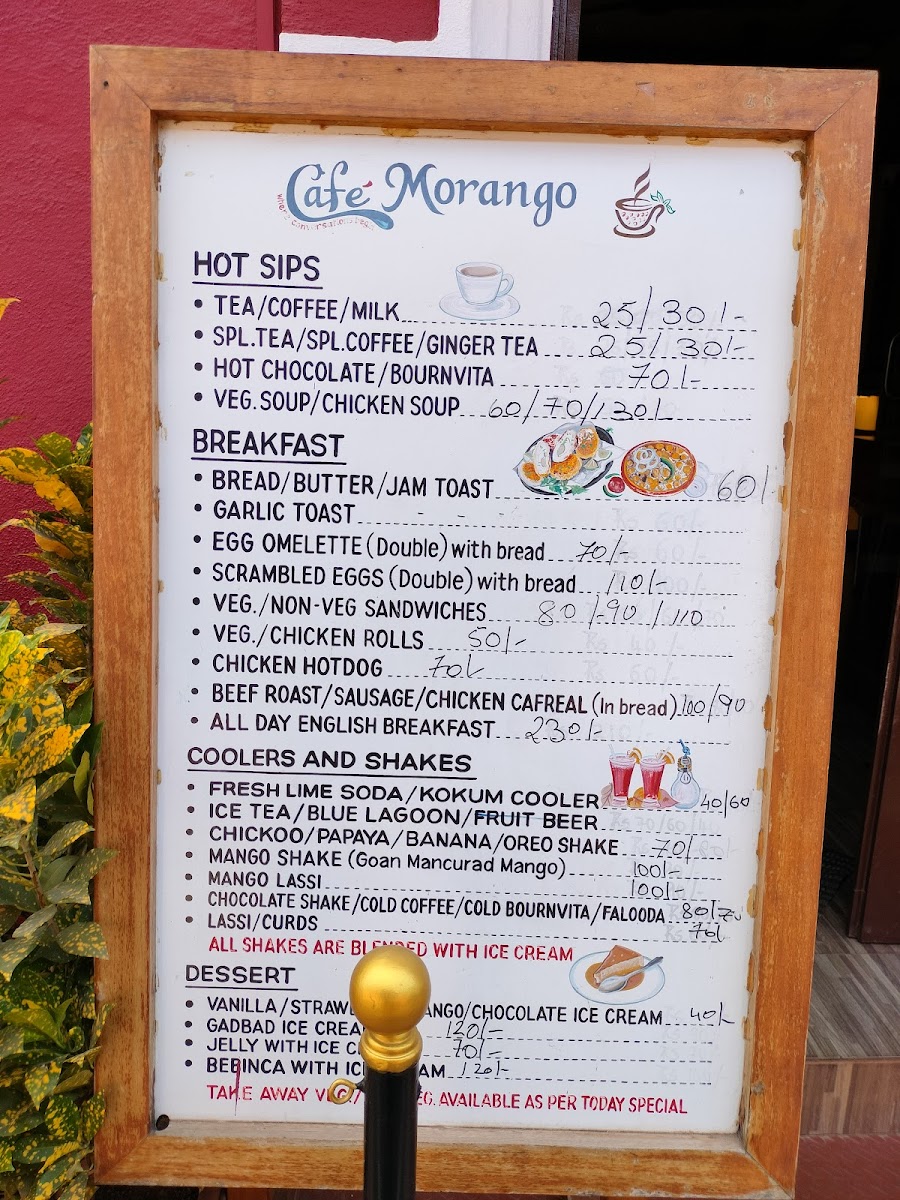 Café Morango
where conversations begin
HOT SIPS
• TEA/COFFEE/MILK 25/30/-
• SPL.TEA/SPL.COFFEE/GINGER TEA 25/30/-
• HOT CHOCOLATE/BOURNVITA 70/-
• VEG.SOUP/CHICKEN SOUP 60/70/130/-
BREAKFAST
• BREAD/BUTTER/JAM TOAST 60/-
• GARLIC TOAST
• EGG OMELETTE (Double) with bread 70/-
• SCRAMBLED EGGS (Double) with bread 110/-
• VEG./NON-VEG SANDWICHES 80/-90/110
• VEG./CHICKEN ROLLS 50/-
• CHICKEN HOTDOG 70/-
• BEEF ROAST/SAUSAGE/CHICKEN CAFREAL (In bread) 100/90
• ALL DAY ENGLISH BREAKFAST 230/-
COOLERS AND SHAKES
• FRESH LIME SODA/KOKUM COOLER 40/60
• ICE TEA/BLUE LAGOON/FRUIT BEER
• CHICKOO/PAPAYA/BANANA/OREO SHAKE 70/-
• MANGO SHAKE (Goan Mancurad Mango) 100/-
• MANGO LASSI 100/-
• CHOCOLATE SHAKE/COLD COFFEE/COLD BOURNVITA/FALOODA 80/70
• LASSI/CURDS 70/-
ALL SHAKES ARE BLENDED WITH ICE CREAM
DESSERT
• VANILLA/STRAW ANGO/CHOCOLATE ICE CREAM 40/-
• GADBAD ICE CREA 120/-
• JELLY WITH ICE C 70/-
• BEBINCA WITH IC AM 120/-
TAKE AWAY VEG/ EG. AVAILABLE AS PER TODAY SPECIAL